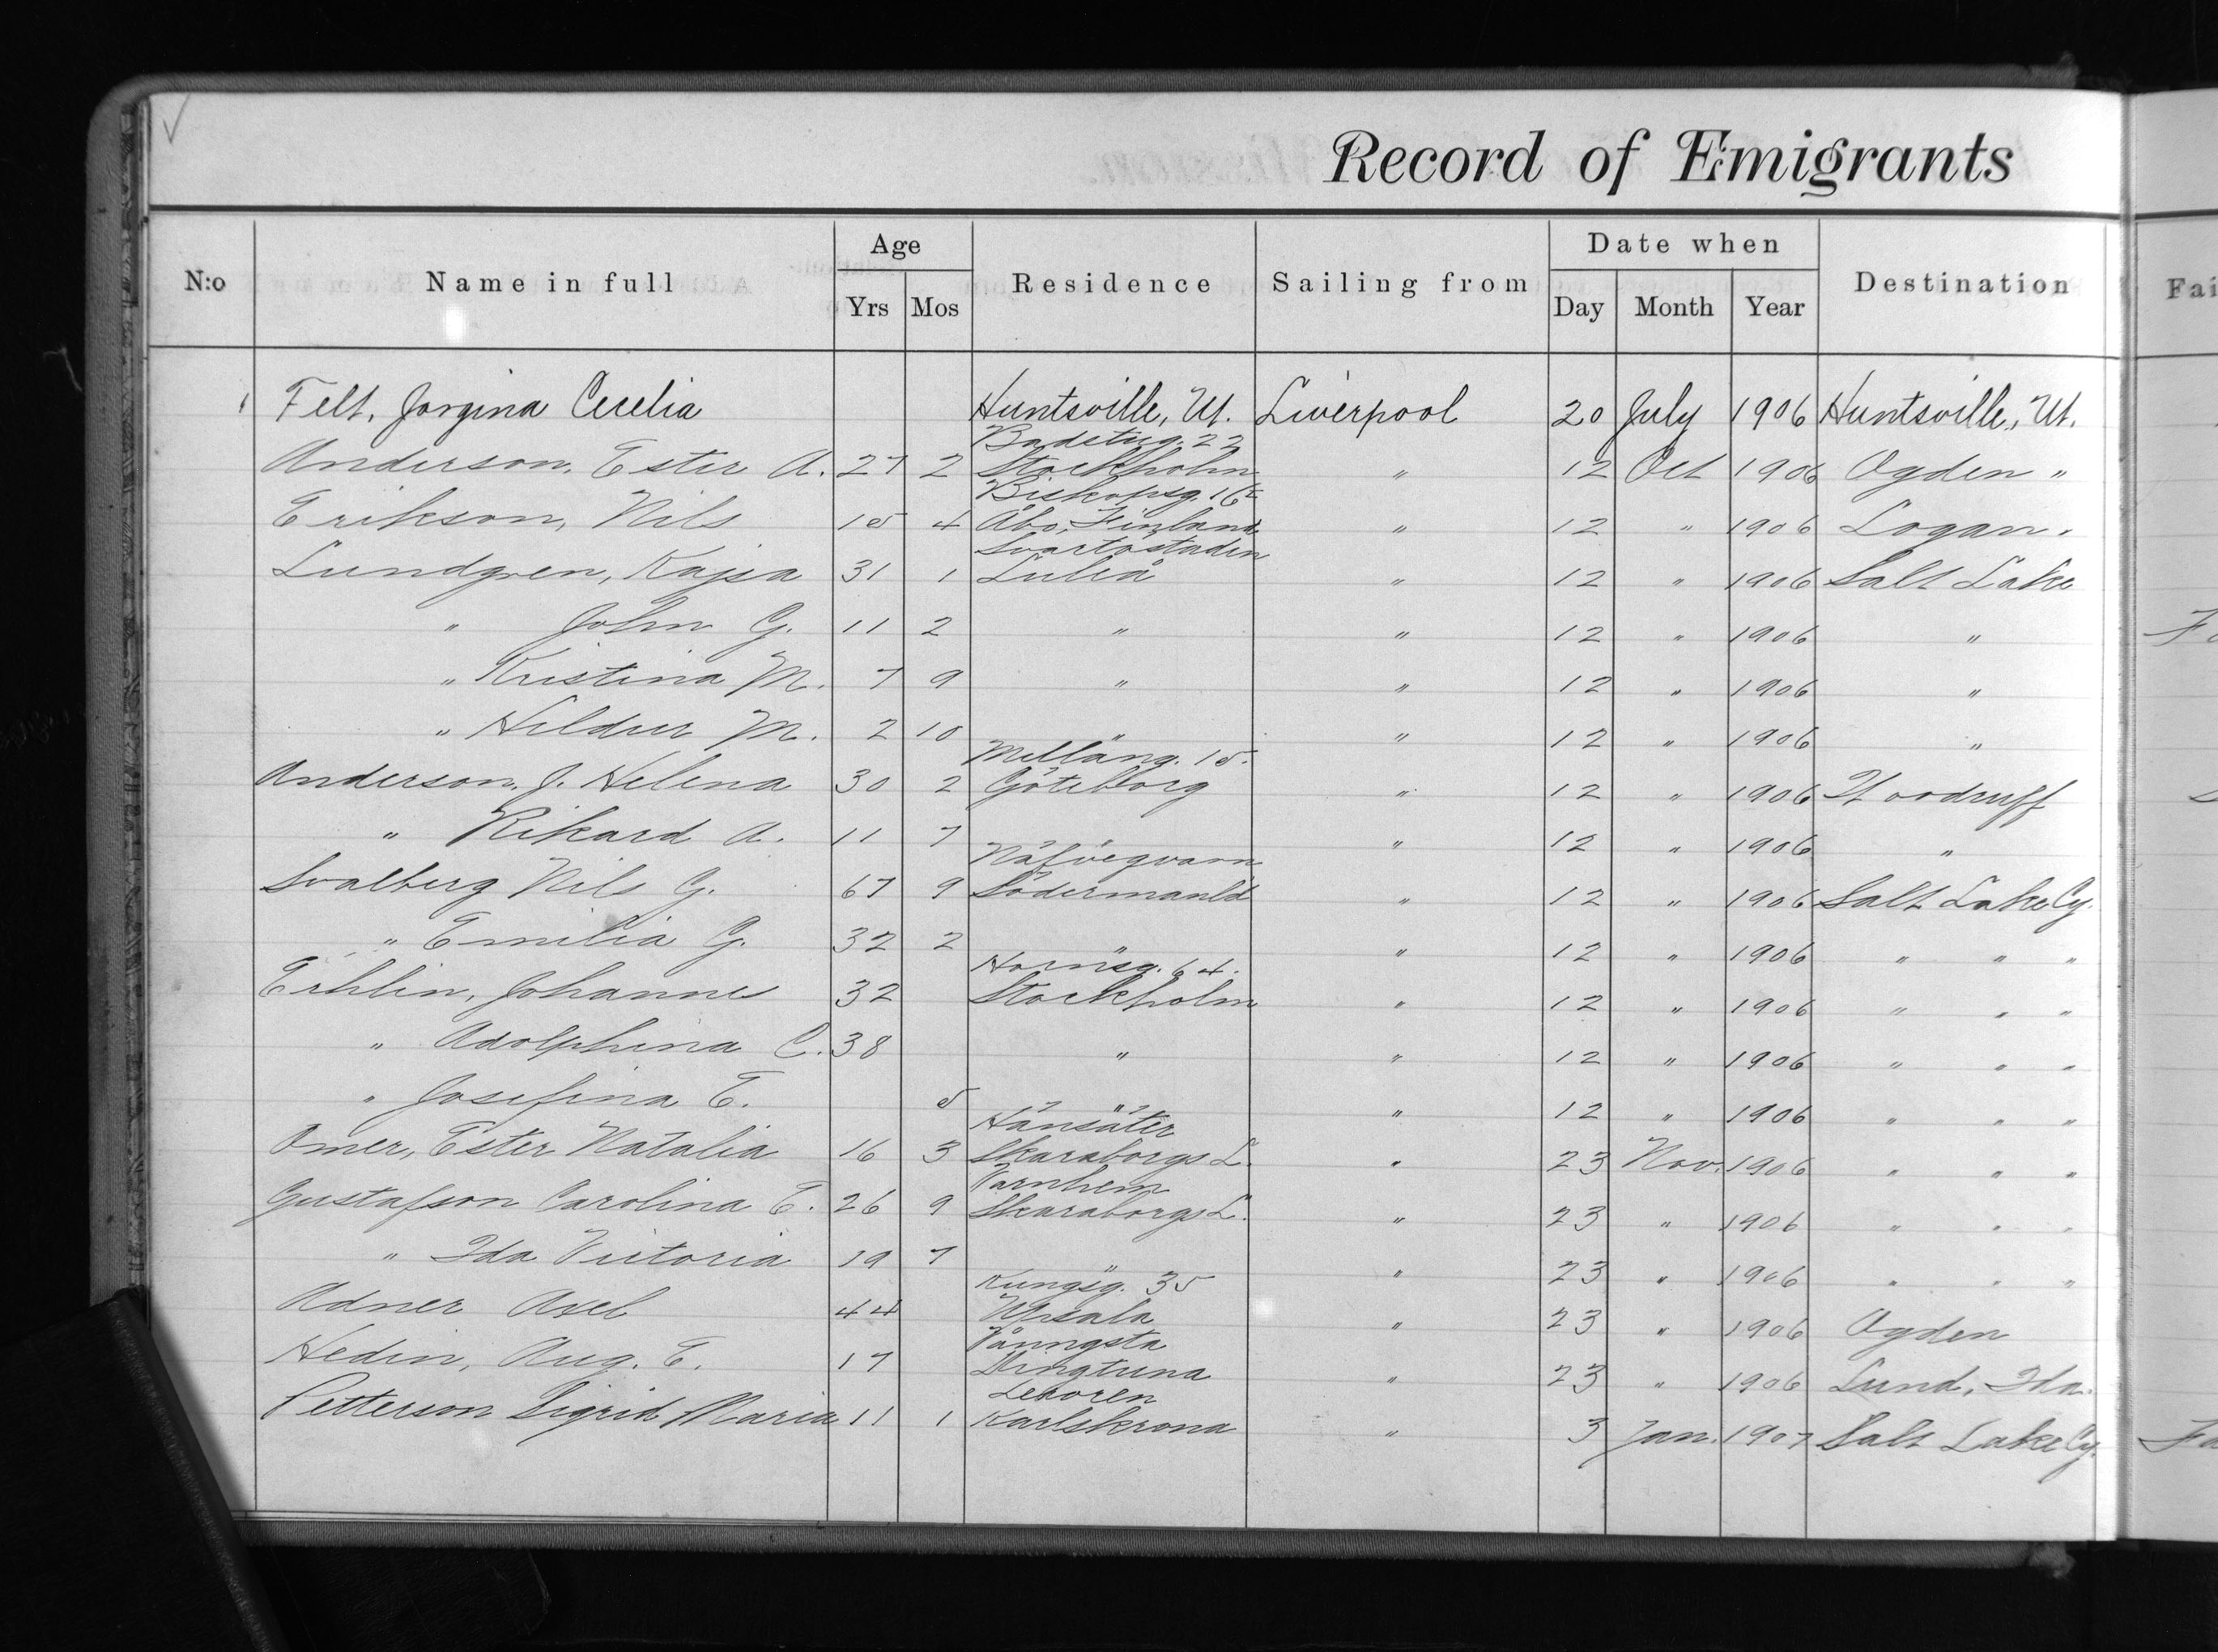 Record of Emigrants
N:o Name in full Age Yrs Mos Residence Sailing from Date when Day Month Year Destination Fai
1 Felt, Jorgina Cecelia Huntsville, Ut. Liverpool 20 July 1906 Huntsville, Ut.
Badstug. 22
Anderson, Ester A. 27 2 Stockholm " 12 Oct 1906 Ogden "
Biskopsg. 16
Erikson, Nils 15 4 Åbo, Finland " 12 " 1906 Logan.
Svartöstaden
Lundgren, Kajsa 31 1 Luleå " 12 " 1906 Salt Lake
" John G. 11 2 " " 12 " 1906 "
" Kristina M. 7 9 " " 12 " 1906 "
" Hildur M. 2 10 " " 12 " 1906 "
Mellang. 15.
Anderson, J. Helena 30 2 Göteborg " 12 " 1906 Woodruff
" Rikard A. 11 7 " 12 " 1906 "
Näfveqvarn
Svalberg Nils G. 67 9 Södermanld " 12 " 1906 Salt Lake Cy.
" Emilia G. 32 2 " " 12 " 1906 " " "
Hornsg. 64.
Johannes 32 Stockholm " 12 " 1906 " " "
" Adolphina C. 38 " " 12 " 1906 " " "
" Josefina E. 5 " " 12 " 1906 " " "
Hänsäter
Omer, Ester Natalia 16 3 Skaraborgs L. " 23 Nov. 1906 " " "
Varnhem
Gustafson Carolina E. 26 9 Skaraborgs L. " 23 " 1906 " " "
" Ida Victoria 19 7 " " 23 " 1906 " " "
Kungsg. 35
Adner Axel 44 Upsala " 23 " 1906 Ogden
Vänngsta
Hedin, Aug. E. 17 Dingtuna " 23 " 1906 Lund, Ida.
Petterson Sigrid Maria 11 1 Karlskrona " 3 Jan. 1907 Salt Lake Cy. Fa